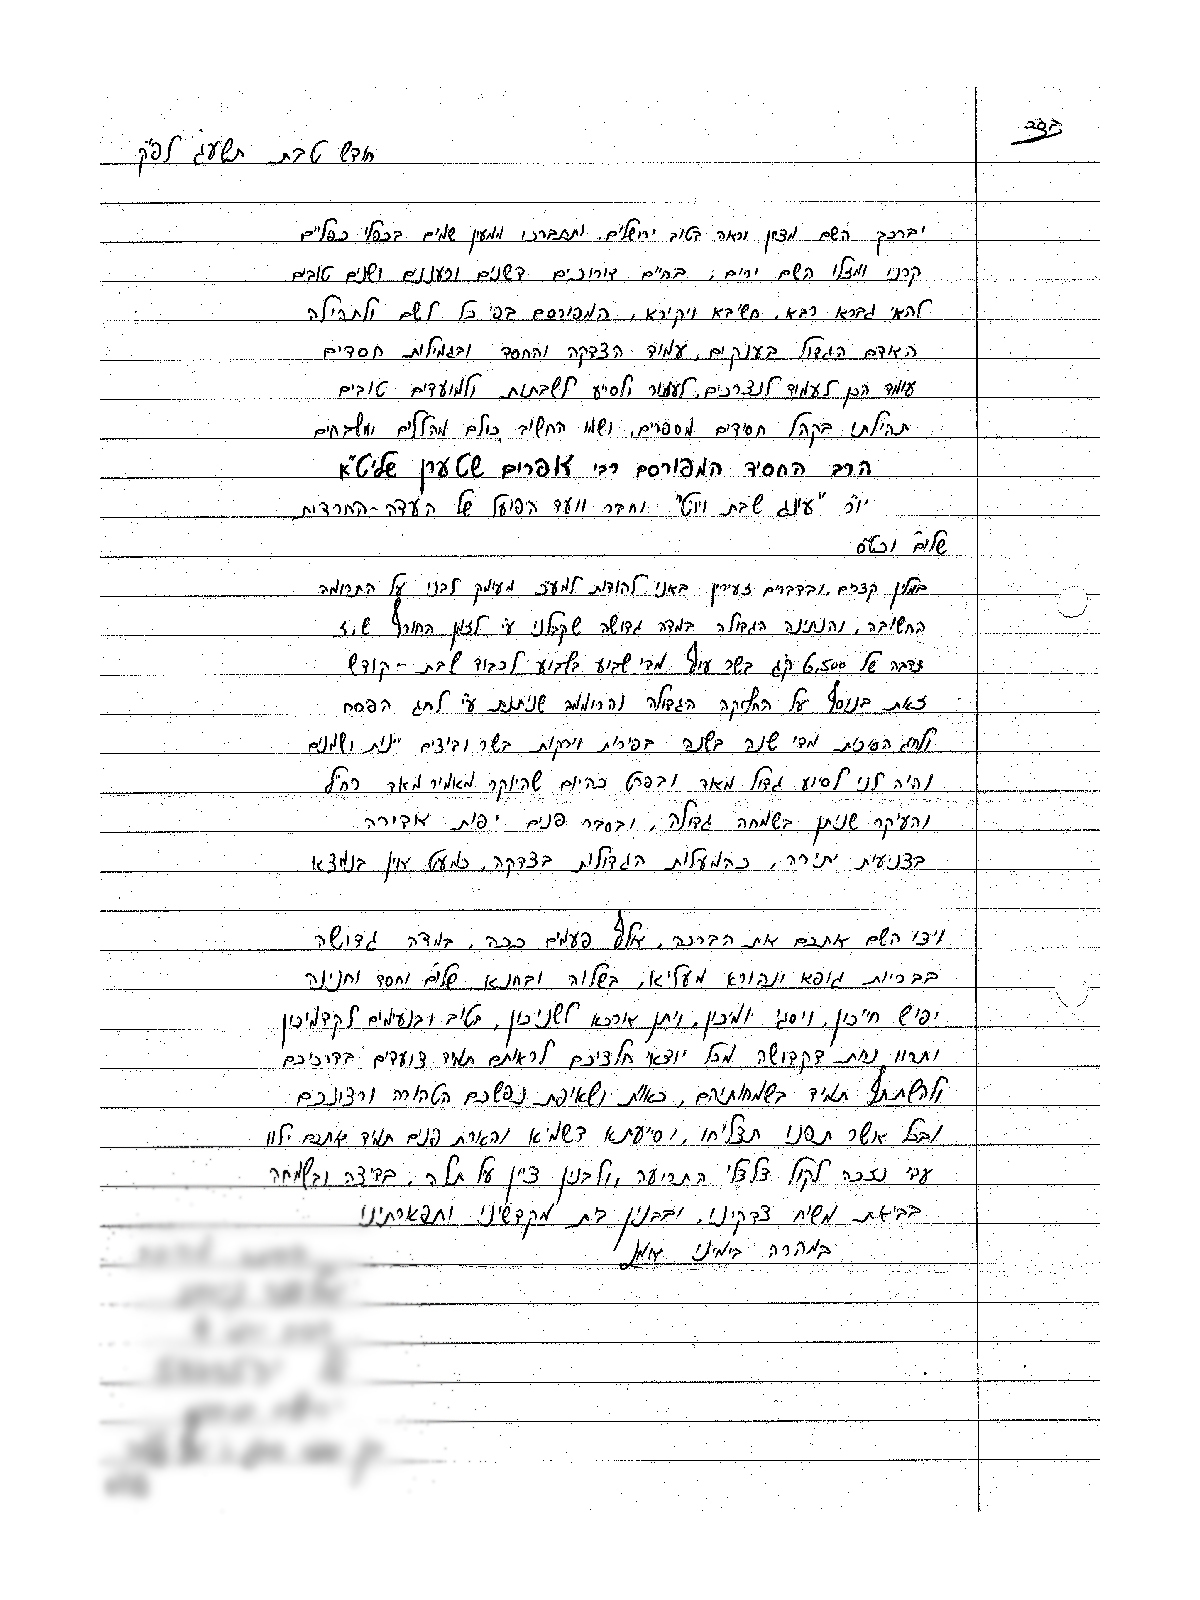 בס"ד
חודש טבת תשע"ג לפ"ק
יברכך השם מציון וראה בטוב ירושלים, ותתברכו ממעון שמים בכפלי כפליים
קרנו ומזלו השם ירים, בחיים ארוכים דשנים ורעננים ושנים טובים
להאי גברא רבא, חשיבא ויקירא, המפורסם בפי כל לשם ולתהילה
האדם הגדול בענקים, עמוד הצדקה והחסד ובגמילות חסדים
עומד הכן לעמוד לנצרכים, לעזור ולסייע לשבתות ולמועדים טובים
תהילתו בקהל חסידים מספרים, ושמו החשוב כולם מהללים ומשבחים
הרב החסיד המפורסם רבי אפרים שטערן שליט"א
יו"ר "עונג שבת ויו"ט" וחבר וועד הפועל של העדה-החרדית
שלום וכט"ס
במלין קצרים, ובדברים זעירין באנו להודות למע"כ מעומק לבנו על התרומה
החשובה, והנתינה הגדולה במדה גדושה שקבלנו ע"י לזמן החורף ש.ז
נדבה של 6,500 ק"ג בשר עוף מדי שבוע בשבוע לכבוד שבת - קודש
זאת בנוסף על החלוקה הגדולה והרוממה שניתנת ע"י לחג הפסח
ולחג הסוכות מדי שנה בשנה בפירות וירקות בשר וביצים יינות ושמנים
והיה לנו לסיוע גדול מאד ובפרט כהיום שהיוקר מאמיר מאד רח"ל
והעיקר שניתן בשמחה גדולה, ובסבר פנים יפות אדירה
בצניעות יתירה, כהמעלות הגדולות בצדקה, כמעט אין בנמצא
ויצו השם אתכם את הברכה, אלף פעמים ככה, במדה גדושה
בבריות גופא ונהורא מעליא, בשלוה ובחנא שלום וחסד וחנינה
יפיש חייכון, ויסגי יומיכון, ויתן ארכא לשניכון, בטיב ובנעימים לקדמיכון
ותרוו נחת דקדושה מכל יוצאי חלציכם לראותם תמיד צועדים בדרכיכם
ולהשתתף תמיד בשמחותיהם, כאות ושאיפת נפשכם הטהורה ורצונכם
ובכל אשר תפנו תצליחו, וסייעתא דשמיא והארת פנים תמיד אתכם ילוו
עדי נזכה לקול צלצלי התרועה, ולבנין ציון על תלה, בדיצה ובשמחה
בביאת משיח צדקינו, ובבנין בית מקדשינו ותפארתינו
במהרה בימינו אמן